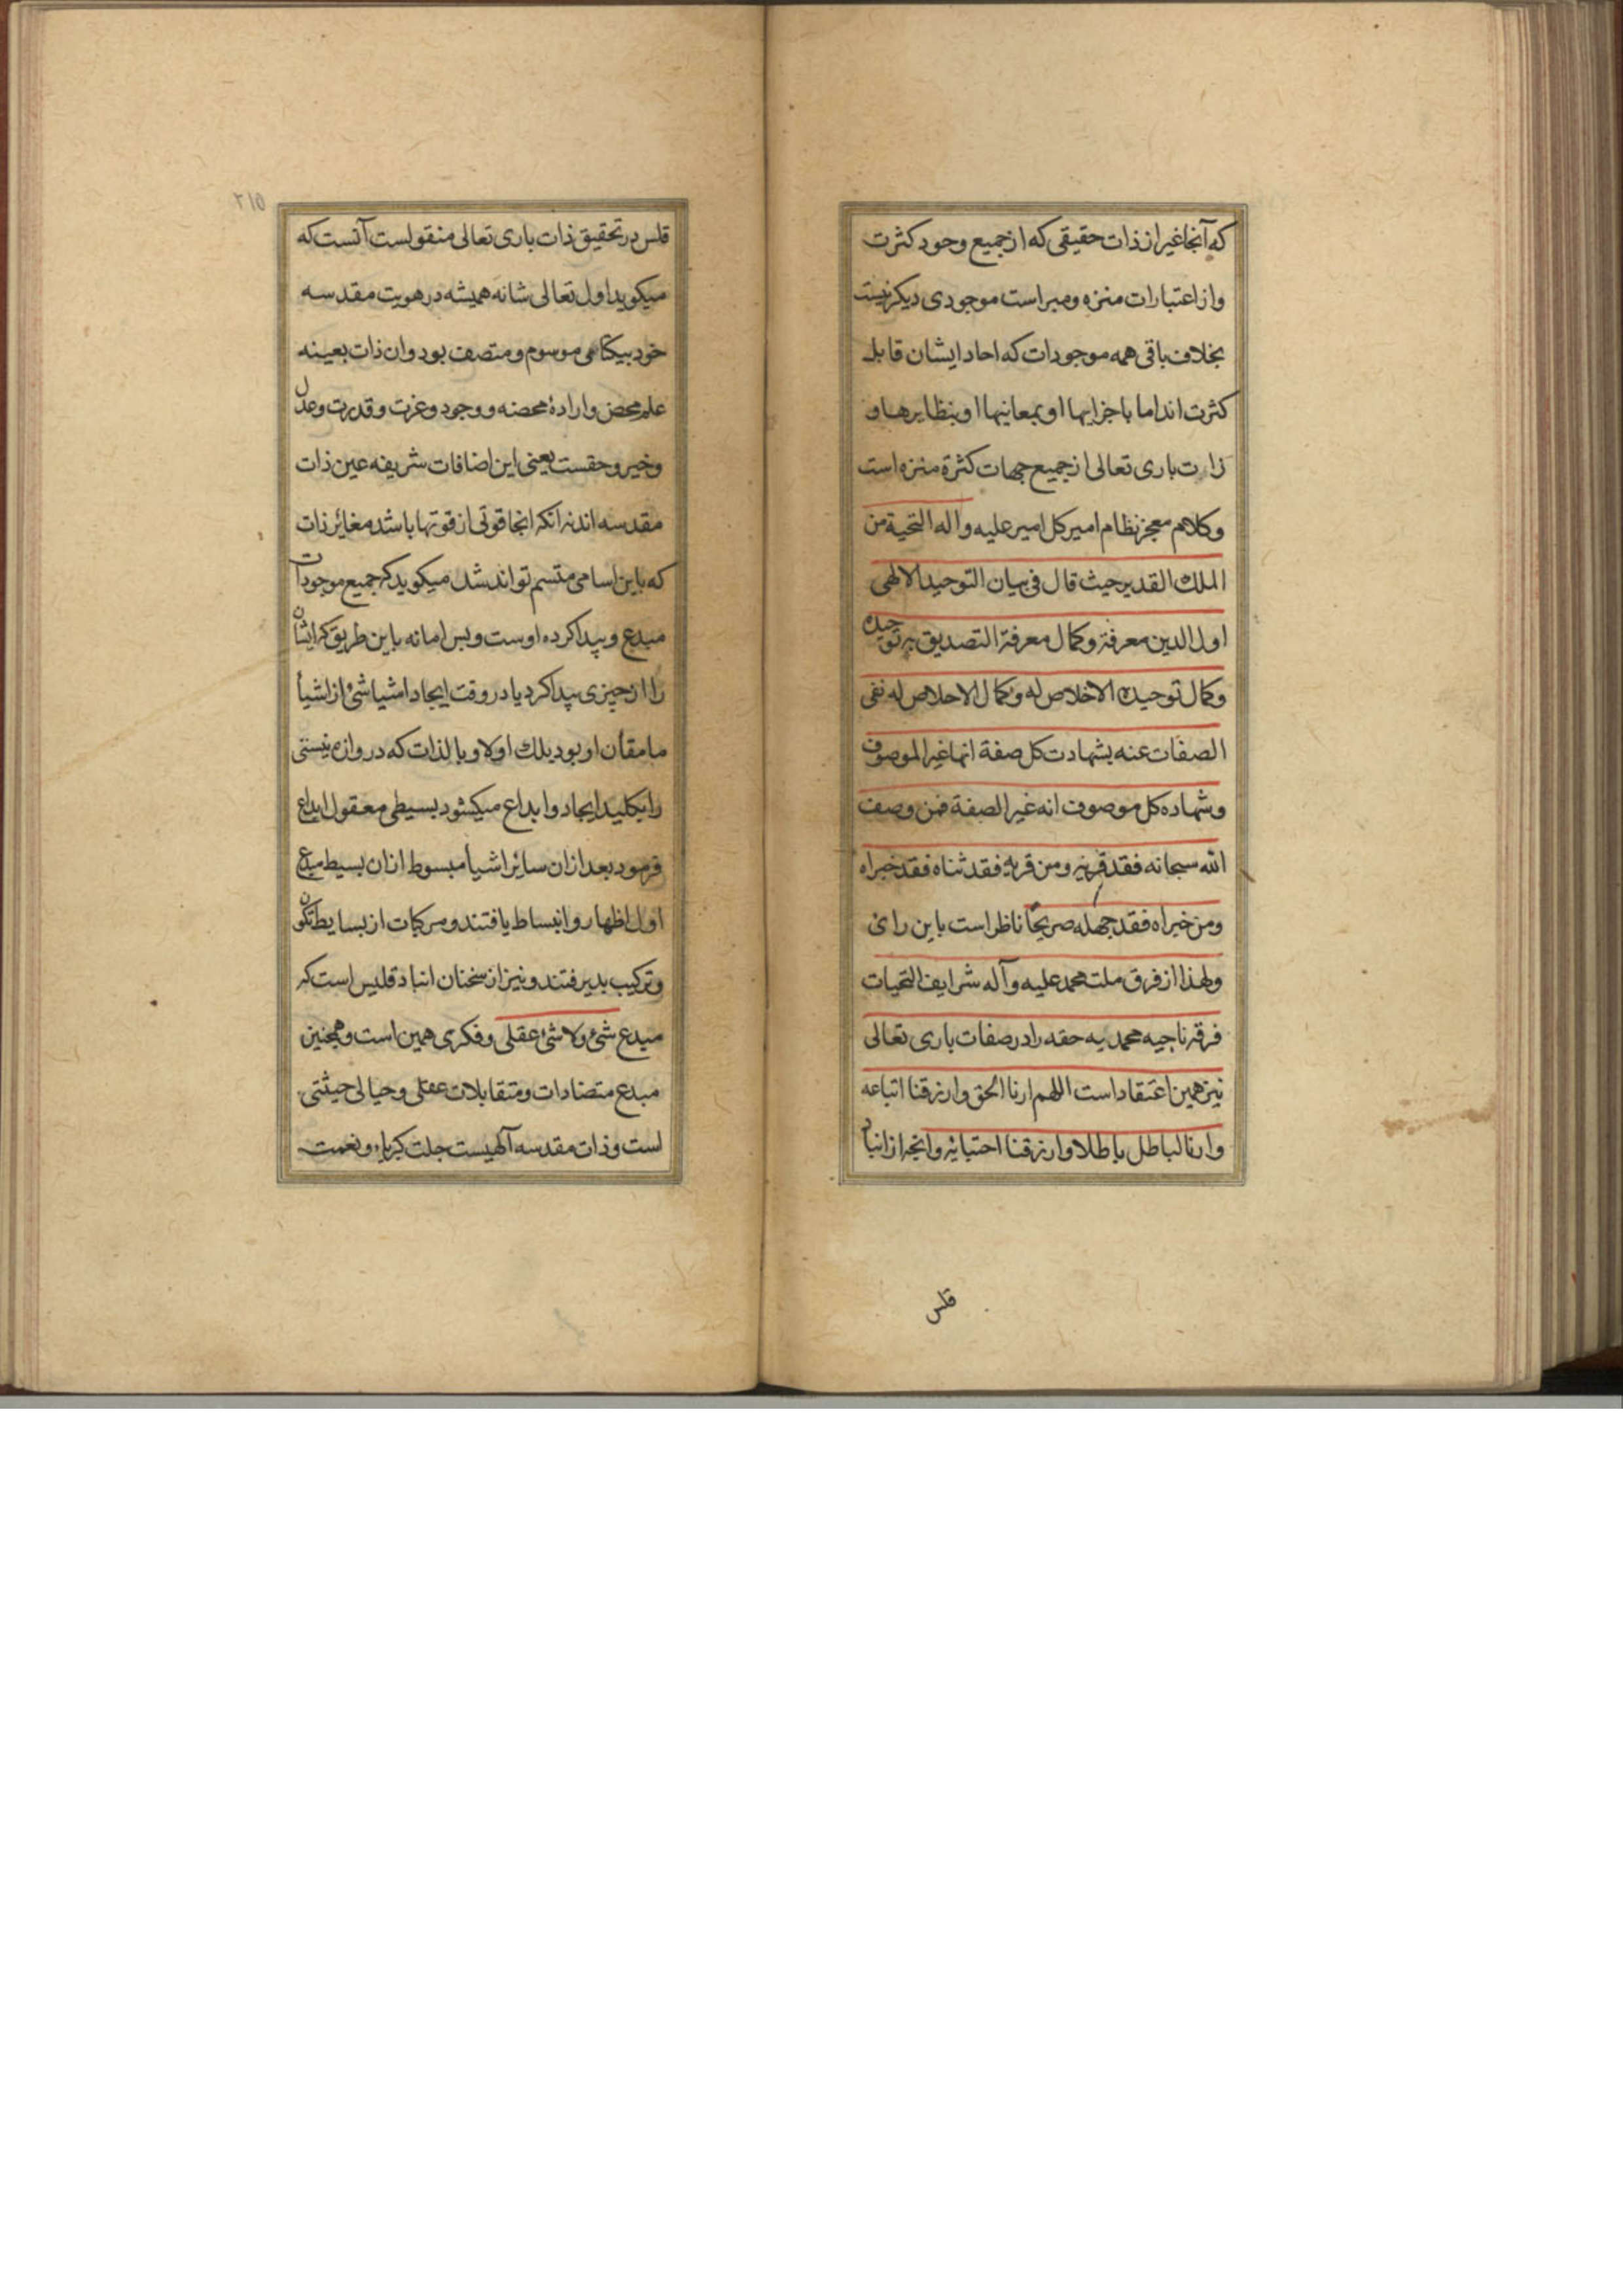 که آنجا غیر از ذات حقیقی که از جمیع وجود کثرت
و از اعتبارات منزه و مبراست موجودی دیکر نیست
بخلاف باقی همه موجودات که احاد ایشان قابل
کثرت اند اما باجزایها او بمعانیها او بنظایرها و
ذات باری تعالی از جمیع جهات کثرة منزه است
و کلام معجز نظام امیر کل امیر علیه و اله التحیة من
الملك القدیر حیث قال فی بیان التوحید الالهی
اول الدین معرفة و کمال معرفة التصدیق به توحیده
و کمال توحیده الاخلاص له و کمال الاخلاص له نفی
الصفات عنه بشهادت کل صفة انها غیر الموصوف
و شهاده کل موصوف انه غیر الصفة فمن وصف
الله سبحانه فقد قرنه و من قرنه فقد ثناه فقد خبراه
و من خبراه فقد جهله صریحا ناظر است باین رای
و لهذا از فرق ملت محمد علیه و آله شرایف التحیات
فرقه ناجیه محمدیه حقه را در صفات باری تعالی
نیز همین اعتقاد است اللهم ارنا الحق و ارزقنا اتباعه
و ارنا لباطل باطلا و ارزقنا اجتنابه و انچه از انباد
قلس
۲۱۵
قلس در تحقیق ذات باری تعالی منقولست آنست که
میکوید اول تعالی شانه همیشه در هویت مقدسه
خود بیکتاهی موسوم و متصف بود و ان ذات بعینه
علم محض و ارادهٔ محضه و وجود و عزت و قدرت و عدل
و خیر و حقست یعنی این اضافات شریفه عین ذات
مقدسه اند نه انکه انجا قوتی از قوتها باشد مغائر ذات
که باین اسامی متسم تواند شد میکوید که جمیع موجودات
مبدع و پیدا کرده اوست و بس اما نه باین طریق که ایشان
را از چیزی پیدا کرد یا در وقت ایجاد اشیا شئ از اشیأ
ما مقأن او بود بلك اولا و بالذات که دروازه نیستی
را بکلید ایجاد و ابداع میکشود بسیطی معقول ابداع
فرمود بعد ازان سائر اشیأ مبسوط ازان بسیط مبدع
اول اظهار و انبساط یافتند و مرکبات از بسایط تکون
و ترکیب بدیرفتند و نیز از سخنان انبادقلیس است که
مبدع شئ و لا شئ عقلی و فکری همین است و همچنین
مبدع متضادات و متقابلات عقلی و خیالی حیثتی
است و ذات مقدسه آلهیست جلت کبریاء و نعمت